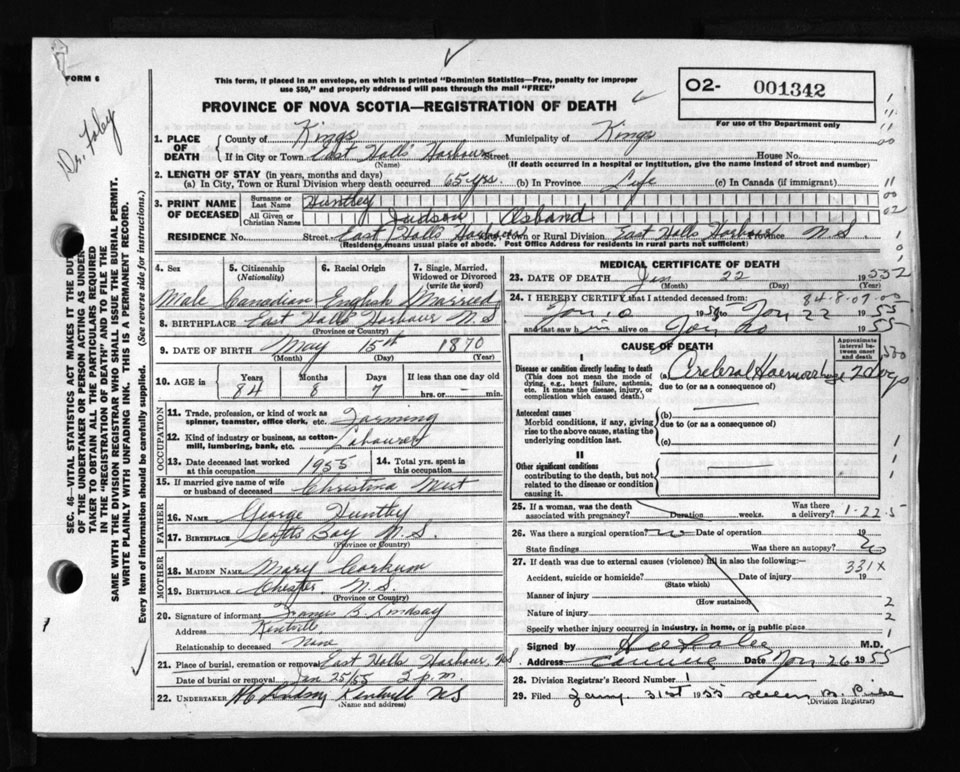 FORM 6
Dr. Foley
This form, if placed in an envelope, on which is printed "Dominion Statistics—Free, penalty for improper
use $50," and properly addressed will pass through the mail "FREE"
PROVINCE OF NOVA SCOTIA—REGISTRATION OF DEATH
O2- 001342
For use of the Department only
SEC. 46—VITAL STATISTICS ACT MAKES IT THE DU
OF THE UNDERTAKER OR PERSON ACTING AS UNDER
TAKER TO OBTAIN ALL THE PARTICULARS REQUIRED
IN THE "REGISTRATION OF DEATH" AND TO FILE THE
SAME WITH THE DIVISION REGISTRAR WHO SHALL ISSUE THE BURIAL PERMIT.
WRITE PLAINLY WITH UNFADING INK. THIS IS A PERMANENT RECORD.
Every item of information should be carefully supplied. (See reverse side for instructions.)
1. PLACE OF DEATH County of Kings Municipality of Kings
If in City or Town East Halls Harbour Street House No.
(Name) (If death occurred in a hospital or institution, give the name instead of street and number)
2. LENGTH OF STAY (in years, months and days)
(a) In City, Town or Rural Division where death occurred 65 yrs. (b) In Province Life (c) In Canada (if immigrant)
3. PRINT NAME OF DECEASED Surname or Last Name Huntley
All Given or Christian Names Judson Osband
RESIDENCE No. Street East Halls Harbour City, Town or Rural Division East Halls Harbour Province N.S.
(Residence means usual place of abode. Post Office Address for residents in rural parts not sufficient)
4. Sex 5. Citizenship (Nationality) 6. Racial Origin 7. Single, Married, Widowed or Divorced (write the word)
Male Canadian English Married
8. BIRTHPLACE East Halls Harbour N.S
(Province or Country)
9. DATE OF BIRTH May 15th 1870
(Month) (Day) (Year)
10. AGE in Years Months Days If less than one day old
84 8 7 hrs. or min.
OCCUPATION
11. Trade, profession, or kind of work as spinner, teamster, office clerk, etc. Farming
12. Kind of industry or business, as cotton-mill, lumbering, bank, etc. Labourer
13. Date deceased last worked at this occupation 1955 14. Total yrs. spent in this occupation
15. If married give name of wife or husband of deceased Christina
FATHER
16. NAME George Huntley
17. BIRTHPLACE Scotts Bay N.S.
(Province or Country)
MOTHER
18. MAIDEN NAME Mary Corkum
19. BIRTHPLACE Chester N.S.
(Province or Country)
20. Signature of informant Francis B. Lindsay
Address Kentville
Relationship to deceased None
21. Place of burial, cremation or removal East Halls Harbour, N.S
Date of burial or removal Jan 25/55 2 p.m.
22. UNDERTAKER Lindsay Kentville N.S
(Name and address)
MEDICAL CERTIFICATE OF DEATH
23. DATE OF DEATH Jan 22 1955
(Month) (Day) (Year)
24. I HEREBY CERTIFY that I attended deceased from:
to Jan 22 1955
and last saw him alive on Jan 20 1955
CAUSE OF DEATH
Approximate interval between onset and death
I
Disease or condition directly leading to death
(This does not mean the mode of dying, e.g., heart failure, asthenia, etc. It means the disease, injury, or complication which caused death.)
(a) Cerebral Haemorrhage 2 days
due to (or as a consequence of)
Antecedent causes
Morbid conditions, if any, giving rise to the above cause, stating the underlying condition last.
(b)
due to (or as a consequence of)
(c)
II
Other significant conditions
contributing to the death, but not related to the disease or condition causing it.
25. If a woman, was the death associated with pregnancy? Duration weeks. Was there a delivery?
1-22-5
26. Was there a surgical operation? no Date of operation 19
State findings Was there an autopsy? no
27. If death was due to external causes (violence) fill in also the following:—
331X
Accident, suicide or homicide? Date of injury 19
(State which)
Manner of injury
(How sustained)
Nature of injury
Specify whether injury occurred in industry, in home, or in public place
Signed by M.D.
Address Canning Date Jan 26 1955
28. Division Registrar's Record Number 1
29. Filed Jany. 31st 1955 Helen
(Division Registrar)